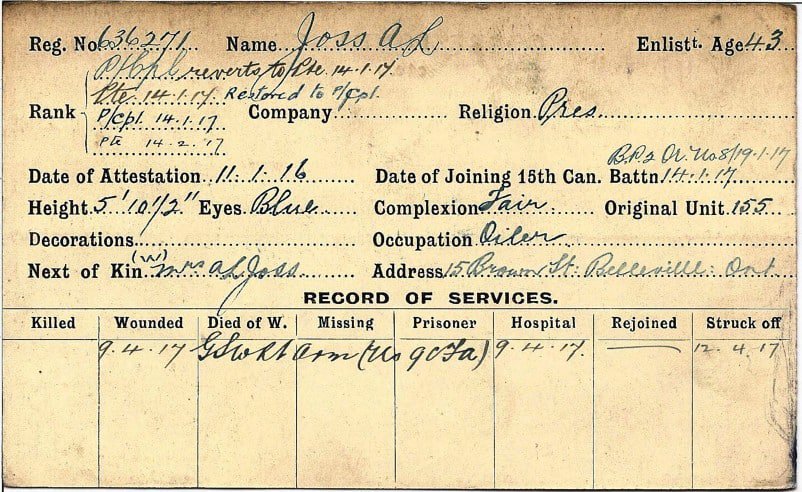 Reg. No. 636271 Name Joss A L Enlistt. Age 43
P/Cpl reverts to Pte. 14.1.17
Pte. 14.1.17 Restored to P/Cpl.
Rank P/Cpl 14.1.17 Company Religion Pres
Pte 14.2.17
B.P.2 Or. No 8/19.1.17
Date of Attestation 11.1.16 Date of Joining 15th Can. Battn 14.1.17
Height 5' 10 1/2" Eyes Blue Complexion Fair Original Unit 155
Decorations Occupation Oiler
Next of Kin (W) Mrs A L Joss Address 15 Brown St. Belleville. Ont
RECORD OF SERVICES.
Killed Wounded Died of W. Missing Prisoner Hospital Rejoined Struck off
9.4.17 GSW Rt Arm (No 9 C Fa) 9.4.17. 12.4.17